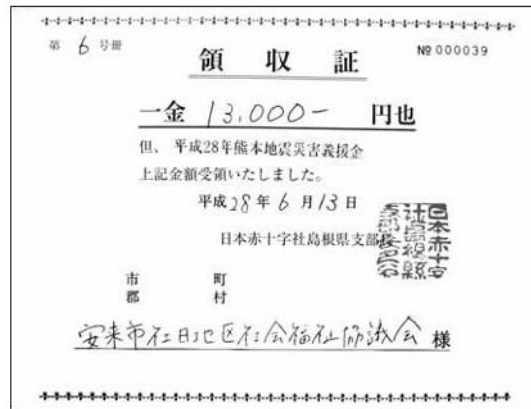 第 6 号冊
№ 000039
領収証
一金 13,000- 円也
但、平成28年熊本地震災害義援金
上記金額受領いたしました。
平成28年6月13日
日本赤十字社島根県支部長
日本赤十字
社島根縣
市 町
郡 村
安来市社日地区社会福祉協議会 様